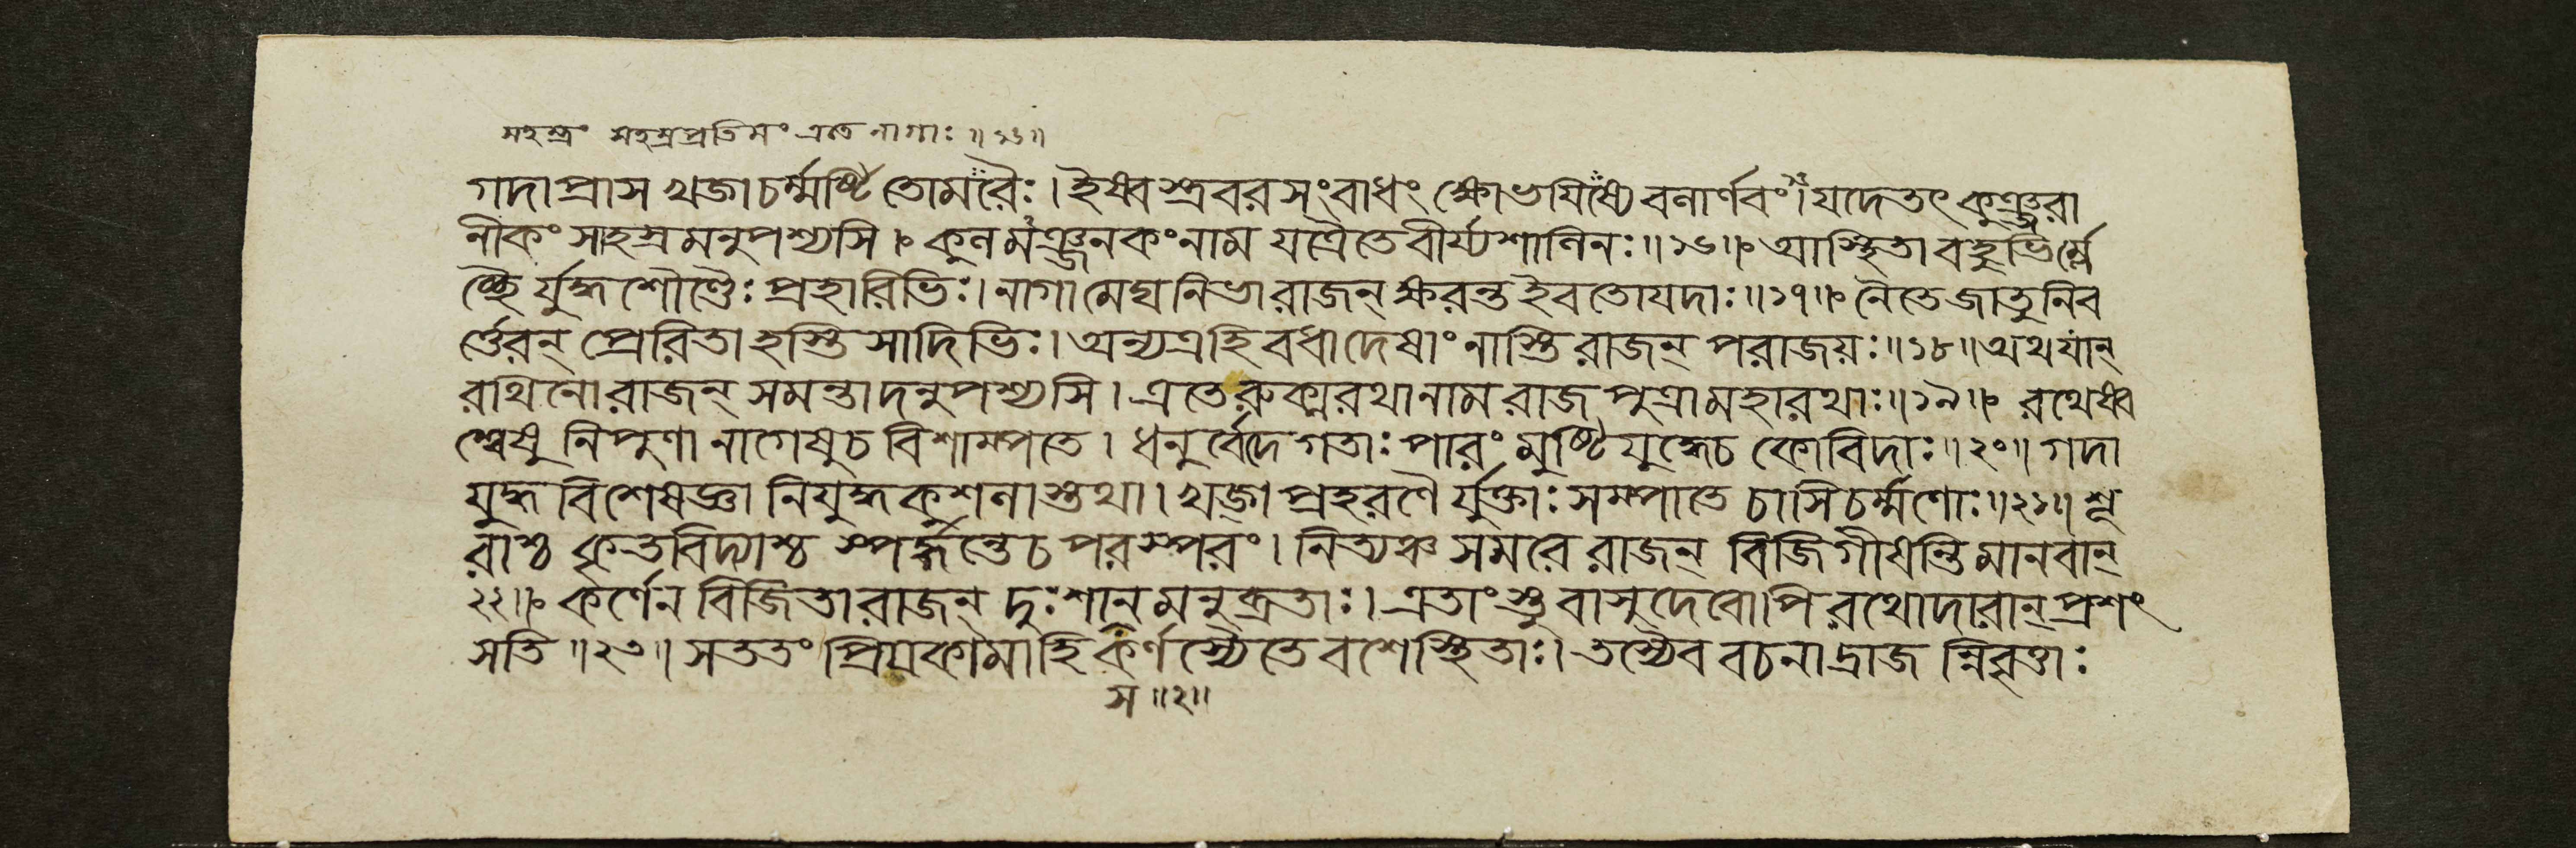 সহস্রং সহস্রপ্রতিমং এতে নাগাঃ ॥১৬॥
গদাপ্রাস খড়্গচর্ম্মর্ষ্টি তোমরৈঃ। ইষ্বস্ত্রবরসংবাধং ক্ষোভয়িষ্যে বলার্ণবং। যদেতৎ কুঞ্জরা
নীকং সাহস্রমনুপশ্যসি। কুলমঞ্জনকংনাম যত্রৈতে বীর্য্যশালিনঃ॥১৬॥ আস্থিতা বহুভির্ম্লে
চ্ছৈ র্যুদ্ধশৌণ্ডৈঃ প্রহারিভিঃ। নাগা মেঘনিভা রাজন্ ক্ষরন্ত ইব তোয়দাঃ॥১৭॥ নৈতে জাতু নিব
র্ত্তেরন্ প্রেরিতা হস্তিসাদিভিঃ। অন্যত্র হি বধাদেষাং নাস্তি রাজন্ পরাজয়ঃ॥১৮॥ অথ যান্
রথিনো রাজন্ সমন্তাদনুপশ্যসি। এতে রুক্মরথা নাম রাজপুত্রা মহারথাঃ॥১৯॥ রথেষ্ব
শ্বেষু নিপুণা নাগেষু চ বিশাম্পতে। ধনুর্ব্বেদে গতাঃ পারং মুষ্টিযুদ্ধে চ কোবিদাঃ॥২০॥ গদা
যুদ্ধ বিশেষজ্ঞা নিযুদ্ধ কুশলাস্তথা। খড়্গপ্রহরণৈ র্যুক্তাঃ সম্পাতে চাসিচর্ম্মণোঃ॥২১॥ শূ
রাশ্চ কৃতবিদ্যাশ্চ স্পর্দ্ধন্তে চ পরস্পরং। নিত্যঞ্চ সমরে রাজন্ বিজিগীষন্তি মানবান্
২২॥ কর্ণেন বিজিতা রাজন্ দুঃশাসনমনুব্রতাঃ। এতাংস্তু বাসুদেবোপি রথোদারান্ প্রশং
সতি॥২৩॥ সততং প্রিয়কামা হি কর্ণস্যৈতে বশে স্থিতাঃ। তস্যৈব বচনাদ্রাজ ন্নিবৃত্তাঃ
স॥২॥